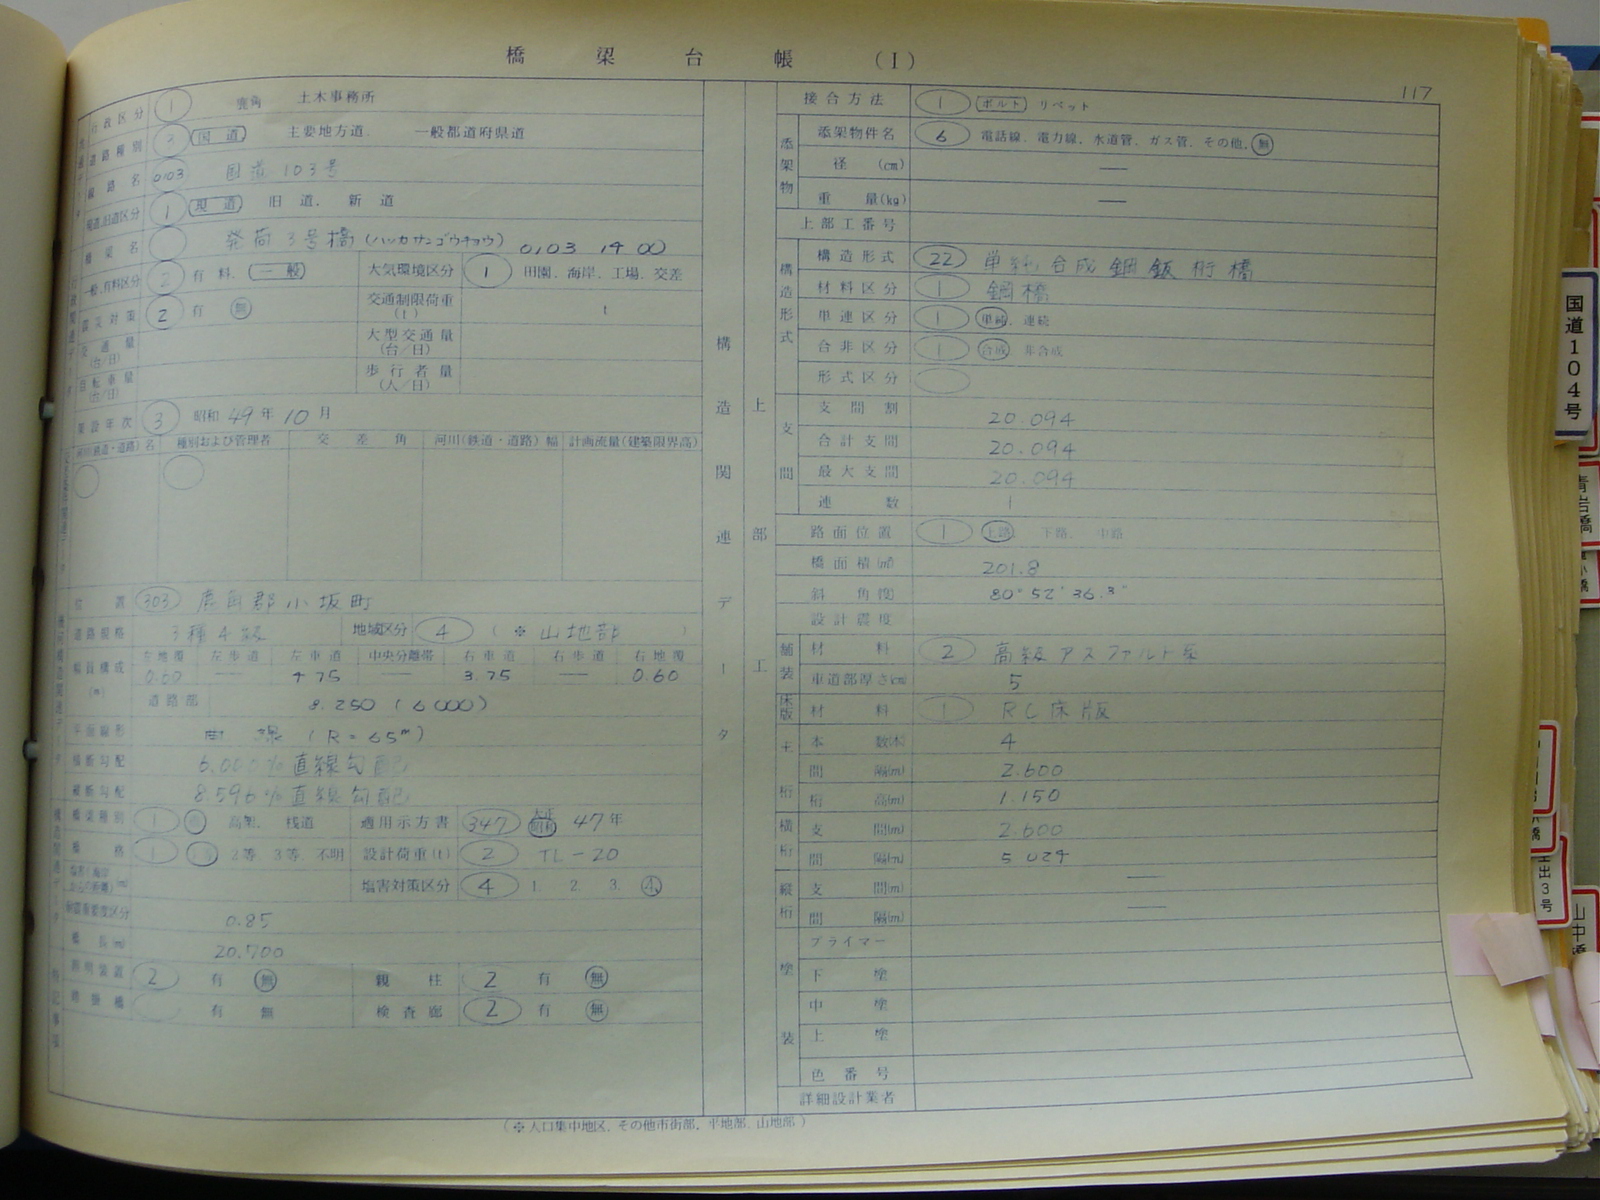 橋梁台帳 (I)
117
行政区分 1 鹿角 土木事務所
道路種別 3 国道 主要地方道. 一般都道府県道
路線名 0103 国道103号
現道.旧道区分 1 現道 旧道. 新道
橋梁名 発荷3号橋 (ハッカサンゴウキョウ) 0103 1400
一般.有料区分 2 有料. 一般 大気環境区分 1 田園. 海岸. 工場. 交差
震災対策 2 有 無 交通制限荷重 (t) t
交通量 (台/日) 大型交通量 (台/日)
自転車量 (台/日) 歩行者量 (人/日)
架設年次 3 昭和 49年 10月
河川(鉄道・道路)名 種別および管理者 交差角 河川(鉄道・道路)幅 計画流量(建築限界高)
位置 303 鹿角郡小坂町
道路規格 3種4級 地域区分 4 (※ 山地部 )
幅員構成 (m) 左地覆 左歩道 左車道 中央分離帯 右車道 右歩道 右地覆
0.60 — 4.75 — 3.75 — 0.60
道路部 8.250 (6000)
平面線形 曲線 (R=65m)
横断勾配 6.000% 直線勾配
縦断勾配 8.596% 直線勾配
橋梁種別 1 橋 高架. 桟道 適用示方書 347 大正 昭和 47年
橋格 1 1等 2等. 3等. 不明 設計荷重(t) 2 TL-20
塩害対策区分 4 1. 2. 3. 4.
耐震重要度区分 0.85
橋長(m) 20.700
照明装置 2 有 無 親柱 2 有 無
踏掛橋 有 無 検査廊 2 有 無
特記事項
構造関連データ
上部工
接合方法 1 ボルト リベット
添架物
添架物件名 6 電話線. 電力線. 水道管. ガス管. その他. 無
径 (cm) —
重量(kg) —
上部工番号
構造形式
構造形式 22 単純合成鋼鈑桁橋
材料区分 1 鋼橋
単連区分 1 単純. 連続
合非区分 1 合成. 非合成
形式区分
支間
支間割 20.094
合計支間 20.094
最大支間 20.094
連数 1
路面位置 1 上路. 下路. 中路
橋面積(㎡) 201.8
斜角(度) 80°52′36.3″
設計震度
舗装
材料 2 高級アスファルト系
車道部厚さ(cm) 5
床版 材料 1 RC床版
主桁
本数(本) 4
間隔(m) 2.600
桁高(m) 1.150
横桁
支間(m) 2.600
間隔(m) 5.024
縦桁
支間(m) —
間隔(m) —
塗装
プライマー
下塗
中塗
上塗
色番号
詳細設計業者
(※人口集中地区. その他市街部. 平地部. 山地部)
国道104号
青岩橋
小橋
生出3号
山中橋